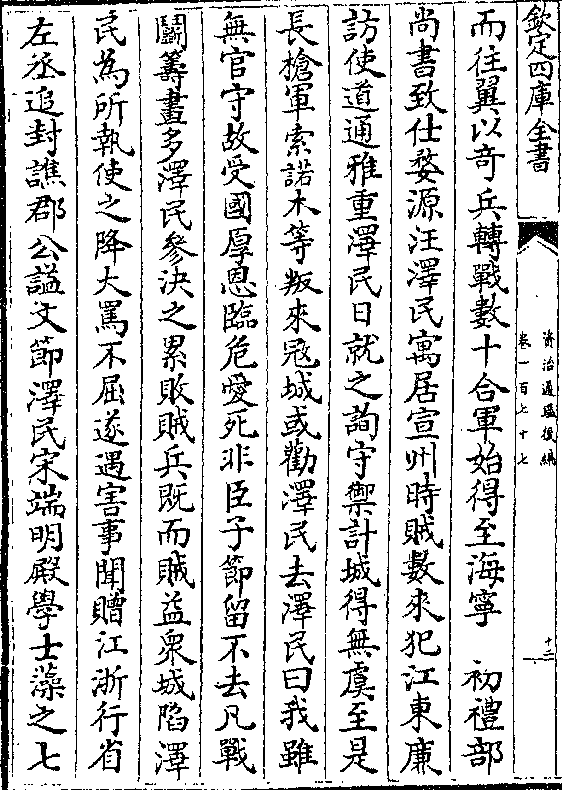 欽定四庫全書
資治通鑑後編
卷一百七十七
十三
而往翼以奇兵轉戰數十合軍始得至海寧　初禮部
尚書致仕婺源汪澤民寓居宣州時賊數來犯江東廉
訪使道通雅重澤民日就之詢守禦計城得無虞至是
長槍軍索諾木等叛來冦城或勸澤民去澤民曰我雖
無官守故受國厚恩臨危愛死非臣子節留不去凡戰
鬬籌畫多澤民參決之累敗賊兵既而賊益衆城陷澤
民為所執使之降大罵不屈遂遇害事聞贈江浙行省
左丞追封譙郡公謚文節澤民宋端明殿學士藻之七